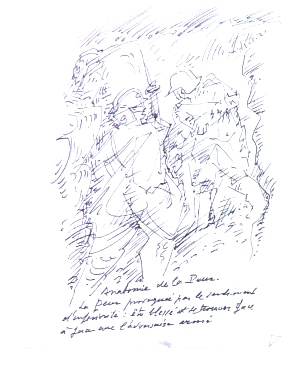 Anatomie de la Peur.
La Peur provoquée par le sentiment
d'infériorité : Etre blessé et se trouver face
à face avec l'adversaire armé